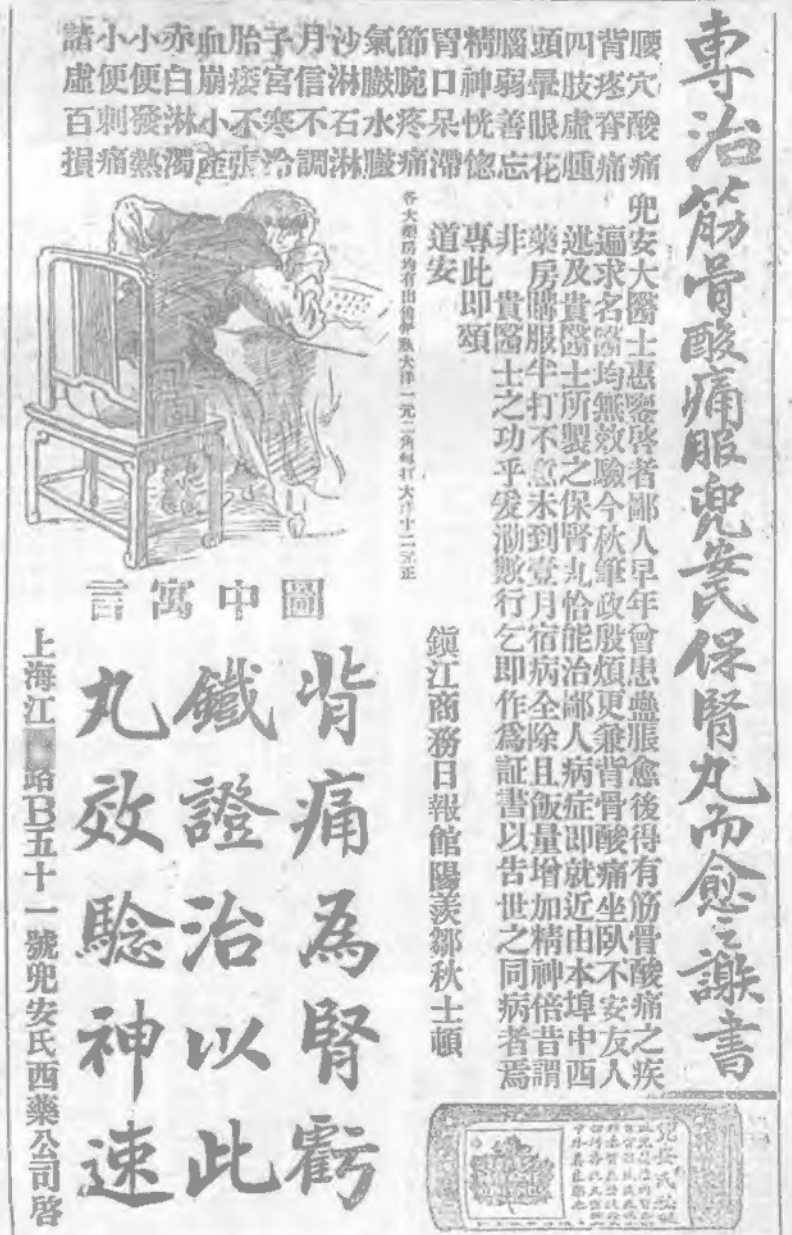 專治筋骨酸痛服兜安氏保腎丸而愈之謝書
腰穴酸痛
背疼脊痛
四肢虛腫
頭暈眼花
腦弱善忘
精神恍惚
胃口呆滯
節腕疼痛
氣臌水臌
沙淋石淋
月信不調
子宮寒冷
胎痿不張
血崩小產
赤白淋濁
小便發熱
小便刺痛
諸虛百損
兜安大醫士惠鑒啓者鄙人早年曾患蠱脹愈後得有筋骨酸痛之疾
遍求名醫均無效驗今秋筆政殷煩更兼背骨酸痛坐臥不安友人
述及貴醫士所製之保腎丸恰能治鄙人病症即就近由本埠中西
藥房購服半打不意未到壹月宿病全除且飯量增加精神倍昔謂
非 貴醫士之功乎爰泐數行乞即作爲証書以告世之同病者焉
專此即頌
道安
鎭江商務日報館陽羨鄒秋士頓
各大藥房均有出售每瓶大洋一元二角每打大洋十二元正
圖中寓言
背痛為腎虧
鐵證治以此
丸效驗神速
上海江路B五十一號兜安氏西藥公司啓
兜安氏